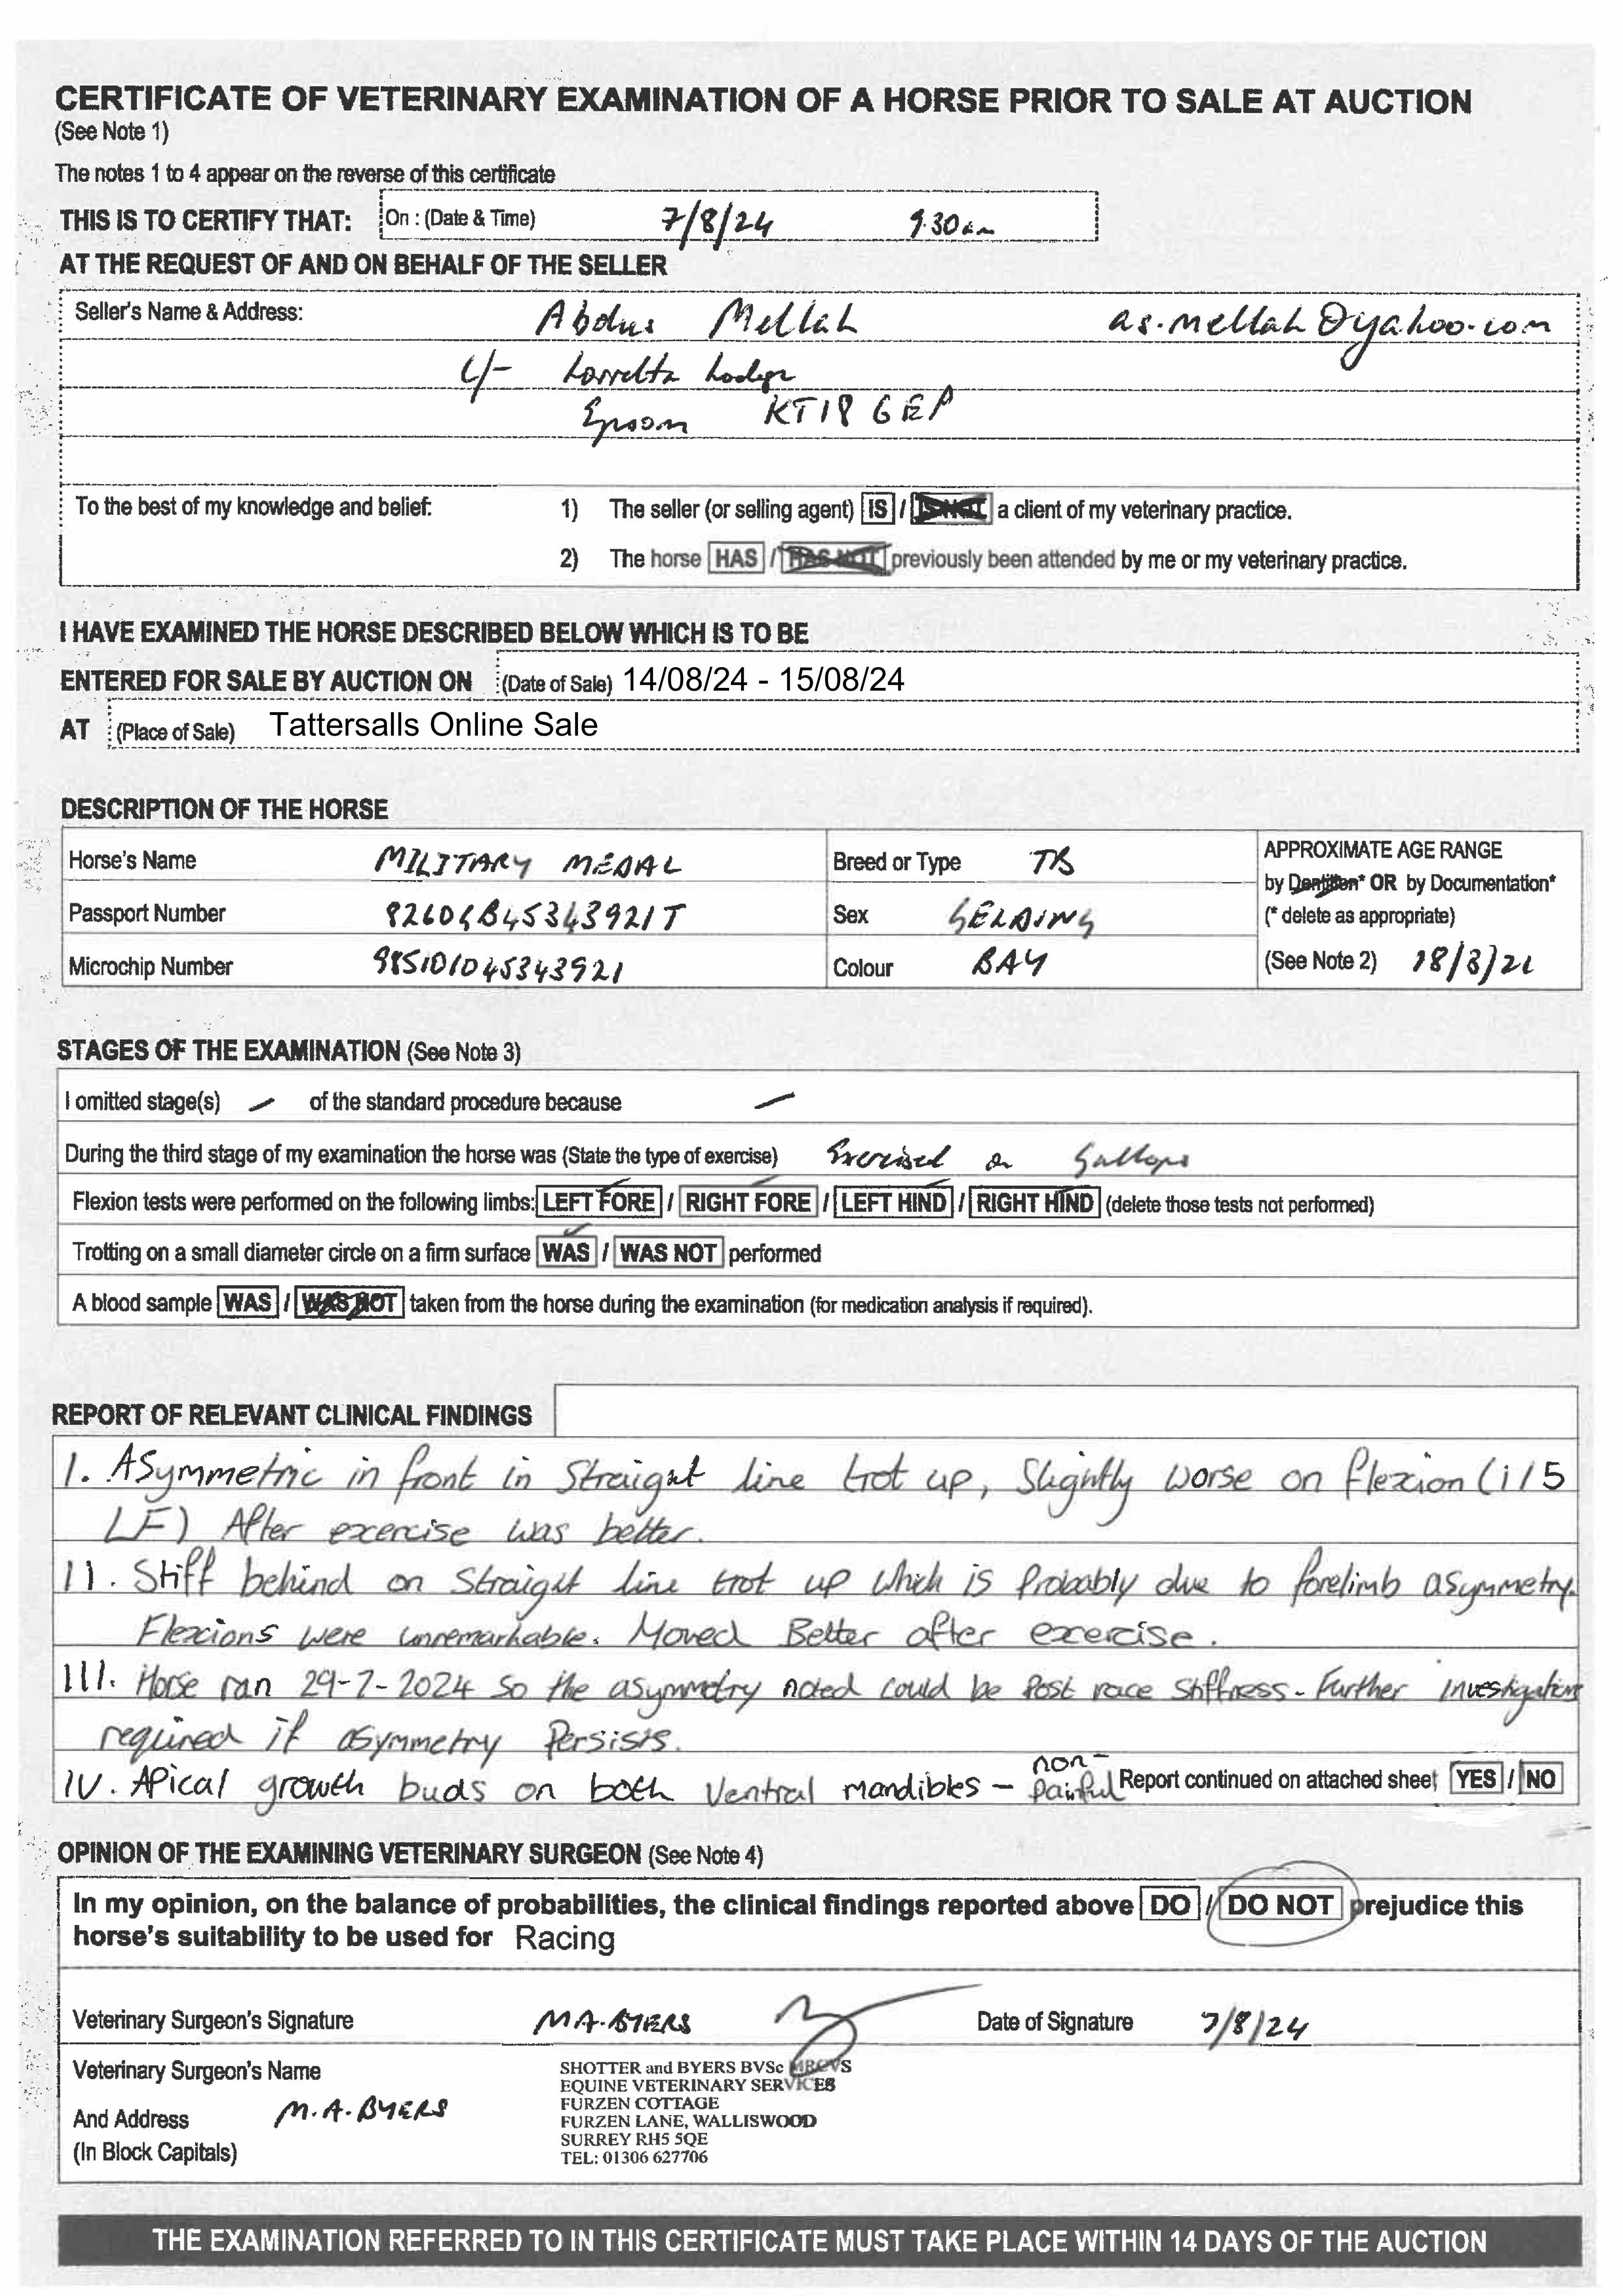 CERTIFICATE OF VETERINARY EXAMINATION OF A HORSE PRIOR TO SALE AT AUCTION
(See Note 1)
The notes 1 to 4 appear on the reverse of this certificate
THIS IS TO CERTIFY THAT: On : (Date & Time) 7/8/24 9.30am
AT THE REQUEST OF AND ON BEHALF OF THE SELLER
Seller's Name & Address: Abdus Mellah as.mellah@yahoo.com
c/- Lodge
Epsom KT18
To the best of my knowledge and belief: 1) The seller (or selling agent) IS / IS NOT a client of my veterinary practice.
2) The horse HAS / HAS NOT previously been attended by me or my veterinary practice.
I HAVE EXAMINED THE HORSE DESCRIBED BELOW WHICH IS TO BE
ENTERED FOR SALE BY AUCTION ON (Date of Sale) 14/08/24 - 15/08/24
AT (Place of Sale) Tattersalls Online Sale
DESCRIPTION OF THE HORSE
Horse's Name MILITARY MEDAL Breed or Type TB APPROXIMATE AGE RANGE
by Dentition* OR by Documentation*
Passport Number Sex GELDING (* delete as appropriate)
Microchip Number 985101045343921 Colour BAY (See Note 2)
STAGES OF THE EXAMINATION (See Note 3)
I omitted stage(s) - of the standard procedure because -
During the third stage of my examination the horse was (State the type of exercise) Exercised on Gallops
Flexion tests were performed on the following limbs: LEFT FORE / RIGHT FORE / LEFT HIND / RIGHT HIND (delete those tests not performed)
Trotting on a small diameter circle on a firm surface WAS / WAS NOT performed
A blood sample WAS / WAS NOT taken from the horse during the examination (for medication analysis if required).
REPORT OF RELEVANT CLINICAL FINDINGS
I. ASymmetric in front in Straight line trot up, Slightly worse on flexion (1/5
LF) After exercise was better.
II. Stiff behind on Straight line trot up which is Probably due to forelimb asymmetry.
Flexions were unremarkable. Moved Better after exercise.
III. Horse ran 29-7-2024 So the asymmetry noted could be Post race Stiffness - Further investigations
required if asymmetry Persists.
IV. Apical growth buds on both Ventral mandibles - non-painful Report continued on attached sheet YES / NO
OPINION OF THE EXAMINING VETERINARY SURGEON (See Note 4)
In my opinion, on the balance of probabilities, the clinical findings reported above DO / DO NOT prejudice this
horse's suitability to be used for Racing
Veterinary Surgeon's Signature MA.BYERS Date of Signature 7/8/24
Veterinary Surgeon's Name
And Address M.A.BYERS
(In Block Capitals)
SHOTTER and BYERS BVSc MRCVS
EQUINE VETERINARY SERVICES
FURZEN COTTAGE
FURZEN LANE, WALLISWOOD
SURREY RH5 5QE
TEL: 01306 627706
THE EXAMINATION REFERRED TO IN THIS CERTIFICATE MUST TAKE PLACE WITHIN 14 DAYS OF THE AUCTION